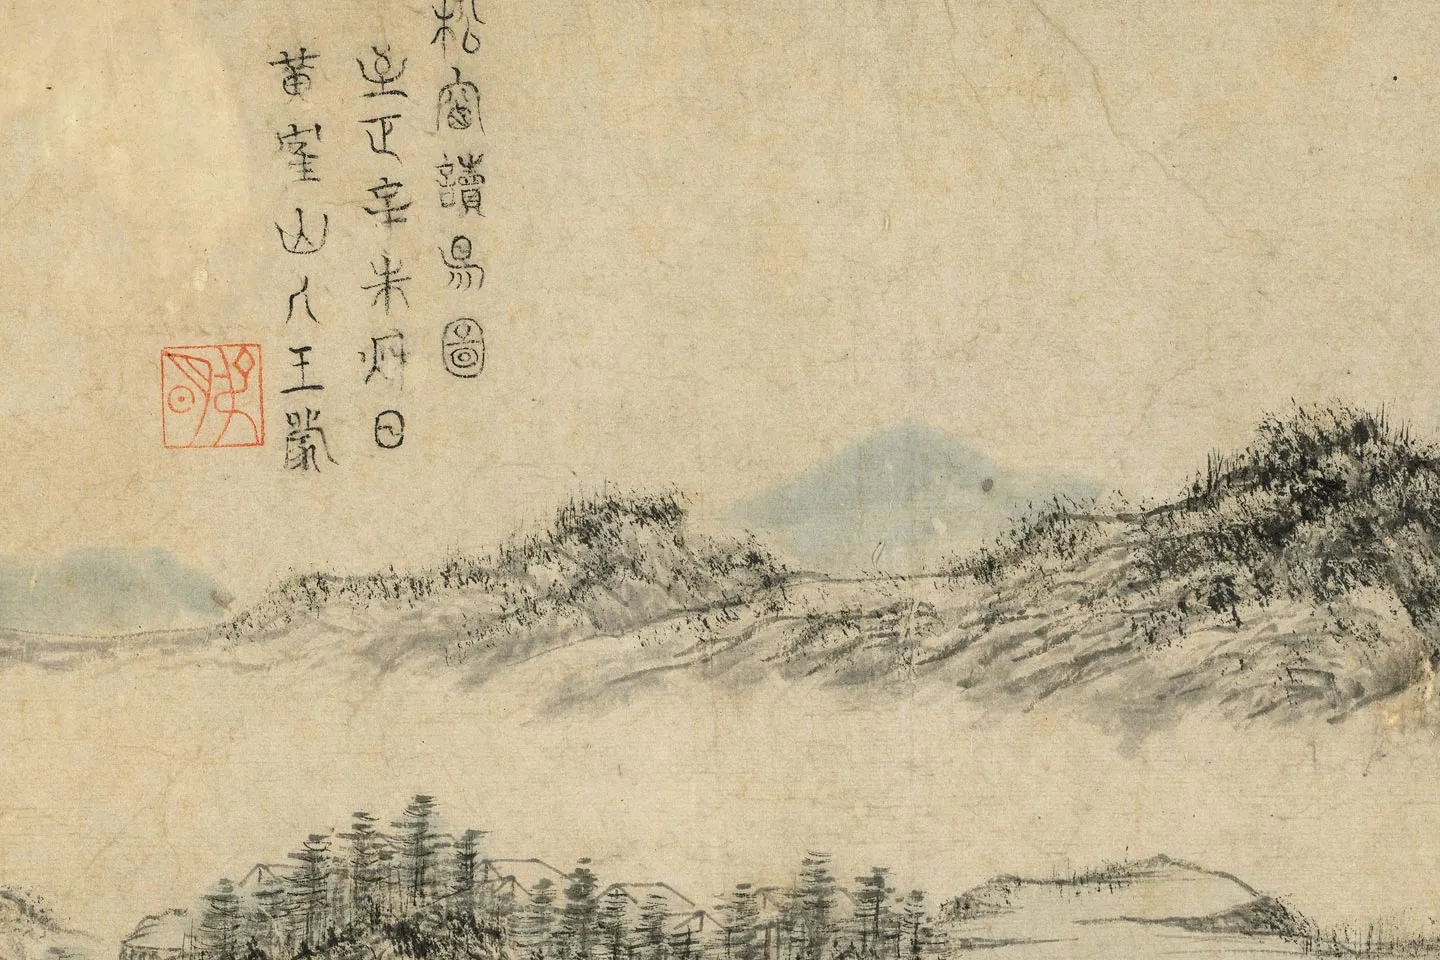 松窗讀易圖
至正辛未秋日
黃寉山人王蒙